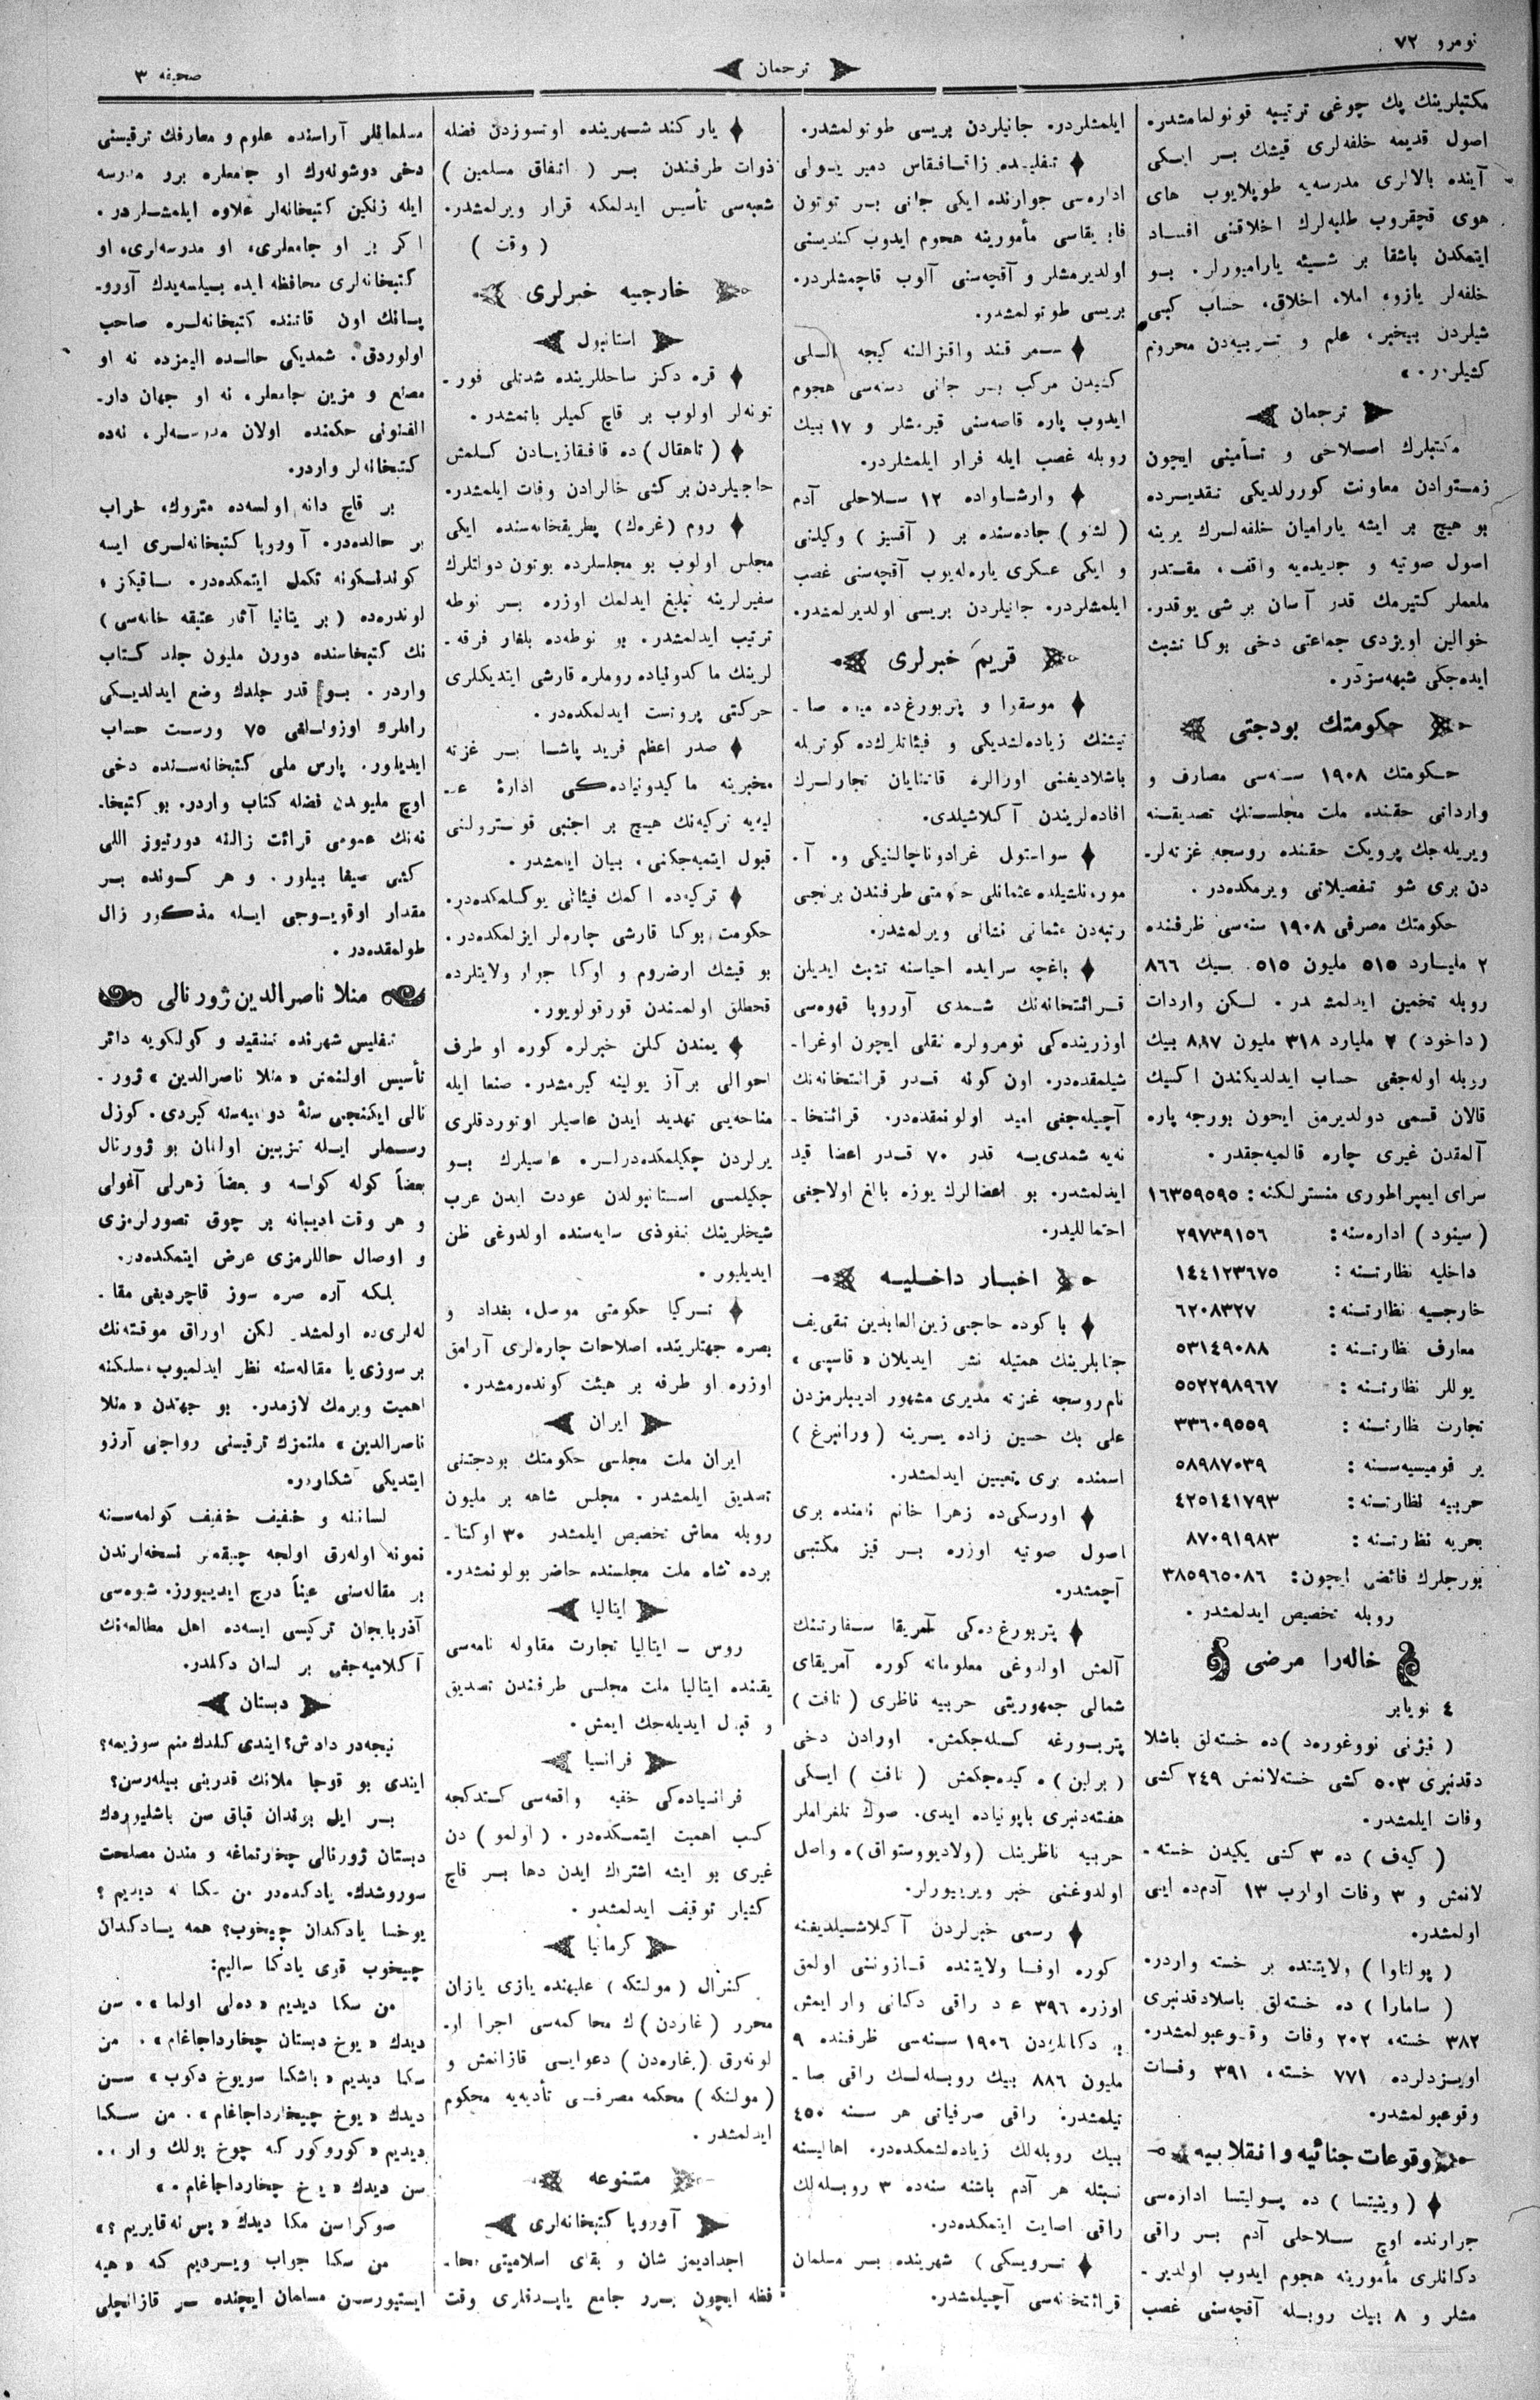 نومرو ٧٢
ترجمان
صحیفه ٣
مکتبلرینك پك چوغی ترتیبه قونولمامشدر.
اصول قدیمه خلفه‌لری قیشك بر ایکی
آینده بالالری مدرسه‌یه طوپلایوب های
هوی قچقروب طلبه‌لرك اخلاقنی افساد
ایتمکدن باشقا بر شیئه یارامیورلر. بو
خلفه‌لر یازو، املا، اخلاق، حساب کبی
شیلردن بیخبر، علم و تربیه‌دن محروم
کشیلردر.»
ترجمان
مکتبلرك اصلاحی و تأمینی ایچون
زمستوادن معاونت کورلدیکی تقدیرده
بو هیچ بر ایشه یارامیان خلفه‌لرك یرینه
اصول صوتیه و جدیده‌یه واقف، مقتدر
ملعملر کتیرمك قدر آسان بر شی یوقدر.
خوالین اویزدی جماعتی دخی بوکا تشبث
ایده‌جکی شبهه‌سزدر.
حکومتك بودجتی
حکومتك ١٩٠٨ سنه‌سی مصارف و
وارداتی حقنده ملت مجلسنك تصدیقنه
ویریله‌جك پرویکت حقنده روسجه غزته‌لر-
دن بری شو تفصیلاتی ویرمکده‌در.
حکومتك مصرفی ١٩٠٨ سنه‌سی ظرفنده
٢ ملیارد ٥١٥ ملیون ٥١٥ بیك ٨٦٦
روبله تخمین ایدلمشدر. لکن واردات
(داخود) ٢ ملیارد ٣١٨ ملیون ٨٨٧ بیك
روبله اوله‌جغی حساب ایدلدیکندن اکسیك
قالان قسمی دولدیرمق ایچون بورجه پاره
آلمقدن غیری چاره قالمیه‌جقدر.
سرای ایمپراطوری منسترلکنه: ١٦٣٥٩٥٩٥
(سینود) اداره‌سنه: ٢٩٧٣٩١٥٦
داخلیه نظارتنه: ١٤٤١٢٣٦٧٥
خارجیه نظارتنه: ٦٢٠٨٣٢٧
معارف نظارتنه: ٥٣١٤٩٠٨٨
یوللر نظارتنه: ٥٥٢٢٩٨٩٦٧
تجارت نظارتنه: ٣٣٦٠٩٥٥٩
یر قومیسیه‌سنه: ٥٨٩٨٧٠٣٩
حربیه نظارتنه: ٤٢٥١٤١٧٩٣
بحریه نظارتنه: ٨٧٠٩١٩٨٣
بورجلرك فائضی ایچون: ٣٨٥٩٦٥٠٨٦
روبله تخصیص ایدلمشدر.
خاله‌را مرضی
٤ نویابر
(نیژنی نووغورود) ده خسته‌لق باشلا
دقدنبری ٥٠٣ کشی خسته‌لانمش ٢٤٩ کشی
وفات ایلمشدر.
(کیه‌ف) ده ٣ کشی یکیدن خسته-
لانمش و ٣ وفات اولوب ١٣ آدم‌ده ایی
اولمشدر.
(پولتاوا) ولایتنده بر خسته واردر.
(سامارا) ده خسته‌لق باسلادقدنبری
٣٨٢ خسته، ٢٠٢ وفات وقوعبولمشدر.
اویزدلرده ٧٧١ خسته، ٣٩١ وفات
وقوعبولمشدر.
وقوعات جنائیه و انقلابیه
(وینیتسا) ده پولیتسا اداره‌سی
جوارنده اوچ سلاحلی آدم بر راقی
دکانلری مأمورینه هجوم ایدوب اولدیر-
مشلر و ٨ بیك روبله آقچه‌سنی غصب
ایلمشلردر. جانیلردن بریسی طوتولمشدر.
تفلیسده زاقافقاس دمیر یولی
اداره‌سی جوارنده ایکی جانی بر توتون
فابریقاسی مأمورینه هجوم ایدوب کندیسنی
اولدیرمشلر و آقچه‌سنی آلوب قاچمشلردر.
بریسی طوتولمشدر.
سمرقند واقزالنه کیجه اللی
کشیدن مرکب بر جانی دسته‌سی هجوم
ایدوب پاره قاصه‌سنی قیرمشلر و ١٧ بیك
روبله غصب ایله فرار ایلمشلردر.
وارشاواده ١٢ سلاحلی آدم
(لشنو) جاده‌سنده بر (آقسیز) وکیلنی
و ایکی عسکری یاره‌له‌یوب آقچه‌سنی غصب
ایلمشلردر. جانیلردن بریسی اولدیرلمشدر.
قریم خبرلری
موسقوا و پتربورغ‌ده میوه صا-
تیشنك زیاده‌لشدیکی و فیئاتلرك‌ده کوتریله
باشلادیغنی اورالره قاتنایان تجارلرك
افاده‌لریندن آکلاشیلدی.
سواستول غرادوناچالنیکی و. آ.
موره‌نلشیلده عثمانلی حکومتی طرفندن برنجی
رتبه‌دن عثمانی نشانی ویرلمشدر.
باغچه سرایده احیاسنه تشبث ایدیلن
قرائتخانه‌نك شمدی آوروپا قهوه‌سی
اوزرینده‌کی نومرولره نقلی ایچون اوغرا-
شیلمقده‌در. اون کونه قدر قرائتخانه‌نك
آچیله‌جغی امید اولونمقده‌در. قرائتخا-
نه‌یه شمدی‌یه قدر ٧٠ قدر اعضا قید
ایدلمشدر. بو اعضالرك یوزه بالغ اولاجغی
احتمالیدر.
اخبار داخلیه
باکوده حاجی زین‌العابدین تقی‌یف
جنابلرینك همتیله نشر ایدیلان «قاسپی»
نام روسجه غزته مدیری مشهور ادیبلرمزدن
علی بك حسین زاده یسرینه (ورانبرغ)
اسمنده بری تعیین ایدلمشدر.
اورسکی‌ده زهرا خانم نامنده بری
اصول صوتیه اوزره بر قیز مکتبی
آچمشدر.
پتربورغ‌ده‌کی آمریقا سفارتنك
آلمش اولدوغی معلوماته کوره آمریقای
شمالی جمهوریتی حربیه ناظری (تافت)
پتربورغه کله‌جکمش. اورادن دخی
(برلین)ه کیده‌جکمش (تافت) ایکی
هفته‌دنبری یاپونیاده ایدی. صوك تلغراملر
حربیه ناظرینك (ولادیووستواق)ه واصل
اولدوغنی خبر ویریورلر.
رسمی خبرلردن آکلاشیلدیغنه
کوره اوفا ولایتنده قازونتی اولمق
اوزره ٣٩٦ عدد راقی دکانی وار ایمش
بو دکانلردن ١٩٠٦ سنه‌سی ظرفنده ٩
ملیون ٨٨٦ بیك روبله‌لك راقی صا-
تیلمشدر. راقی صرفیاتی هر سنه ٤٥٠
بیك روبله‌لك زیاده‌لشمکده‌در. اهالیسنه
نسبتله هر آدم باشنه سنه‌ده ٣ روبله‌لك
راقی اصابت ایتمکده‌در.
ترویسکی) شهرینده بر مسلمان
قرائتخانه‌سی آچیلمشدر.
یارکند شهرینده اوتسوزدن فضله
ذوات طرفندن بر (اتفاق مسلمین)
شعبه‌سی تأسیس ایدلمکه قرار ویرلمشدر.
(وقت)
خارجیه خبرلری
استانبول
قره دکز ساحللرینده شدتلی فور-
تونه‌لر اولوب بر قاچ کمیلر باتمشدر.
(تاهقال) ده قافقازیادن کلمش
حاجیلردن بر کشی خالرادن وفات ایلمشدر.
روم (غره‌ك) پطریقخانه‌سنده ایکی
مجلس اولوب بو مجلسلرده بوتون دولتلرك
سفیرلرینه تبلیغ ایدلمك اوزره بر نوطه
ترتیب ایدلمشدر. بو نوطه‌ده بلغار فرقه-
لرینك ماکدونیاده روملره قارشی ایتدیکلری
حرکتی پروتست ایدلمکده‌در.
صدر اعظم فرید پاشا بر غزته
مخبرینه ماکیدونیاده‌کی ادارهٔ عد-
لیه‌یه ترکیه‌نك هیچ بر اجنبی قونترولنی
قبول ایتمیه‌جکنی بیان ایلمشدر.
ترکیه‌ده اکمك فیئاتی یوکسلمکده‌در.
حکومت بوکا قارشی چاره‌لر ایزلمکده‌در.
بو قیشك ارضروم و اوکا جوار ولایتلرده
قحطلق اولمسندن قورقولویور.
یمندن کلن خبرلره کوره او طرف
احوالی برآز یولینه کیرمشدر. صنعا ایله
مناحه‌یی تهدید ایدن عاصیلر اوتوردقلری
یرلردن چکیلمکده‌درلر. عاصیلرك بو
چکیلمسی استانبولدن عودت ایدن عرب
شیخلرینك نفوذی سایه‌سنده اولدوغی ظن
ایدیلیور.
ترکیا حکومتی موصل، بغداد و
بصره جهتلرینده اصلاحات چاره‌لری آرامق
اوزره او طرفه بر هیئت کوندرمشدر.
ایران
ایران ملت مجلسی حکومتك بودجتنی
تصدیق ایلمشدر. مجلس شاهه بر ملیون
روبله معاش تخصیص ایلمشدر ٣٠ اوکتا-
برده شاه ملت مجلسنده حاضر بولونمشدر.
ایتالیا
روس - ایتالیا تجارت مقاوله نامه‌سی
یقنده ایتالیا ملت مجلسی طرفندن تصدیق
و قبول ایدیله‌جك ایمش.
فرانسیا
فرانسیاده‌کی خفیه واقعه‌سی کتدکجه
کسب اهمیت ایتمکده‌در. (اولمو) دن
غیری بو ایشه اشتراك ایدن دها بر قاچ
کشیلر توقیف ایدلمشدر.
کرمانیا
کنرال (مولتکه) علیهنده یازی یازان
محرر (غاردن)ك محاکمه‌سی اجرا او-
لونه‌رق (غاره‌دن) دعوایی قازانمش و
(مولتکه) محکمه مصرفی تأدیه‌یه محکوم
ایدلمشدر.
متنوعه
آوروپا کتبخانه‌لری
اجدادیمز شان و بقای اسلامیتی محا-
فظه ایچون برر جامع یاپدقلری وقت
مسلمانلر آراسنده علوم و معارفك ترقیسنی
دخی دوشونه‌رك او جامعلره برر مدرسه
ایله زنکین کتبخانه‌لر علاوه ایلمشلردر.
اکر بز او جامعلری، او مدرسه‌لری، او
کتبخانه‌لری محافظه ایده بیلسه‌یدك آورو-
پانك اون قاتنده کتبخانه‌لره صاحب
اولوردق. شمدیکی حالده الیمزده نه او
مصنع و مزین جامعلر، نه او جهان دار-
الفنونی حکمنده اولان مدرسه‌لر، نه‌ده
کتبخانه‌لر واردر.
بر قاچ دانه اولسه‌ده متروك، خراب
بر حالده‌در. آوروپا کتبخانه‌لری ایسه
کوندنکونه تکمل ایتمکده‌در. باقیکز،
لوندره‌ده (بریتانیا آثار عتیقه خانه‌سی)
نك کتبخانه‌سنده دورت ملیون جلد کتاب
واردر. بو قدر جلدك وضع ایدلدیکی
رافلرك اوزولغی ٧٥ ورست حساب
ایدیلور. پارس ملی کتبخانه‌سنده دخی
اوچ ملیوندن فضله کتاب واردر. بو کتبخا-
نه‌نك عمومی قرائت زالنه دورتیوز اللی
کشی صیغا بیلور. و هر کونده بر
مقدار اوقویوجی ایله مذکور زال
طولمقده‌در.
منلا ناصرالدین ژورنالی
تفلیس شهرنده تنقید و کولکویه دائر
تأسیس اولنمش «منلا ناصرالدین» ژور-
نالی ایکنجی سنهٔ دوریه‌سنه کیردی. کوزل
رسملر ایله تزیین اولنان بو ژورنال
بعضاً کوله کوله و بعضاً زهرلی آغولی
و هر وقت ادیبانه بر چوق تصورلرمزی
و اوصال حاللرمزی عرض ایتمکده‌در.
بلکه آره صره سوز قاچردیغی مقا-
له‌لری‌ده اولمشدر لکن اوراق موقته‌نك
بر سوزی یا مقاله‌سنه نظر ایدلمیوب مسلکنه
اهمیت ویرمك لازمدر. بو جهتدن «منلا
ناصرالدین» ملتمزك ترقیسنی رواجنی آرزو
ایتدیکی آشکاردر.
لساننه و خفیف خفیف کولمه‌سنه
نمونه اوله‌رق اولجه چیقمش نسخه‌لرندن
بر مقاله‌سنی عیناً درج ایدییورز. شیوه‌سی
آذربایجان ترکیسی ایسه‌ده اهل مطالعه‌نك
آکلامیه‌جغی بر لسان دکلدر.
دبستان
نیجه‌در داداش؟ ایندی کلدك منم سوزیمه؟
ایندی بو قوجا ملانك قدرینی بیله‌رسن؟
بر ایل بوندان قباق سن باشلیوردك
دبستان ژورنالی چخارتماغه و مندن مصلحت
سوروشدك. یادکده‌در من سکا نه دیدیم؟
یوخسا یادکدان چیخوب؟ همه یادکدان
چیخوب قوی یادکا سالیم:
من سکا دیدیم «ده‌لی اولما». سن
دیدك «یوخ دبستان چخارداجاغام». من
سکا دیدیم «باشکا سویوخ دکوب» سن
دیدك «یوخ چیخارداجاغام». من سکا
دیدیم «کوروکور که چوخ پولك وار..
سن دیدك «یوخ چخارداجاغام.»
صوکرا سن مکا دیدك «پس نه قایریم؟»
من سکا جواب ویردیم که «هیه
ایستیورسن مسلمان ایچنده بر قازانجلی